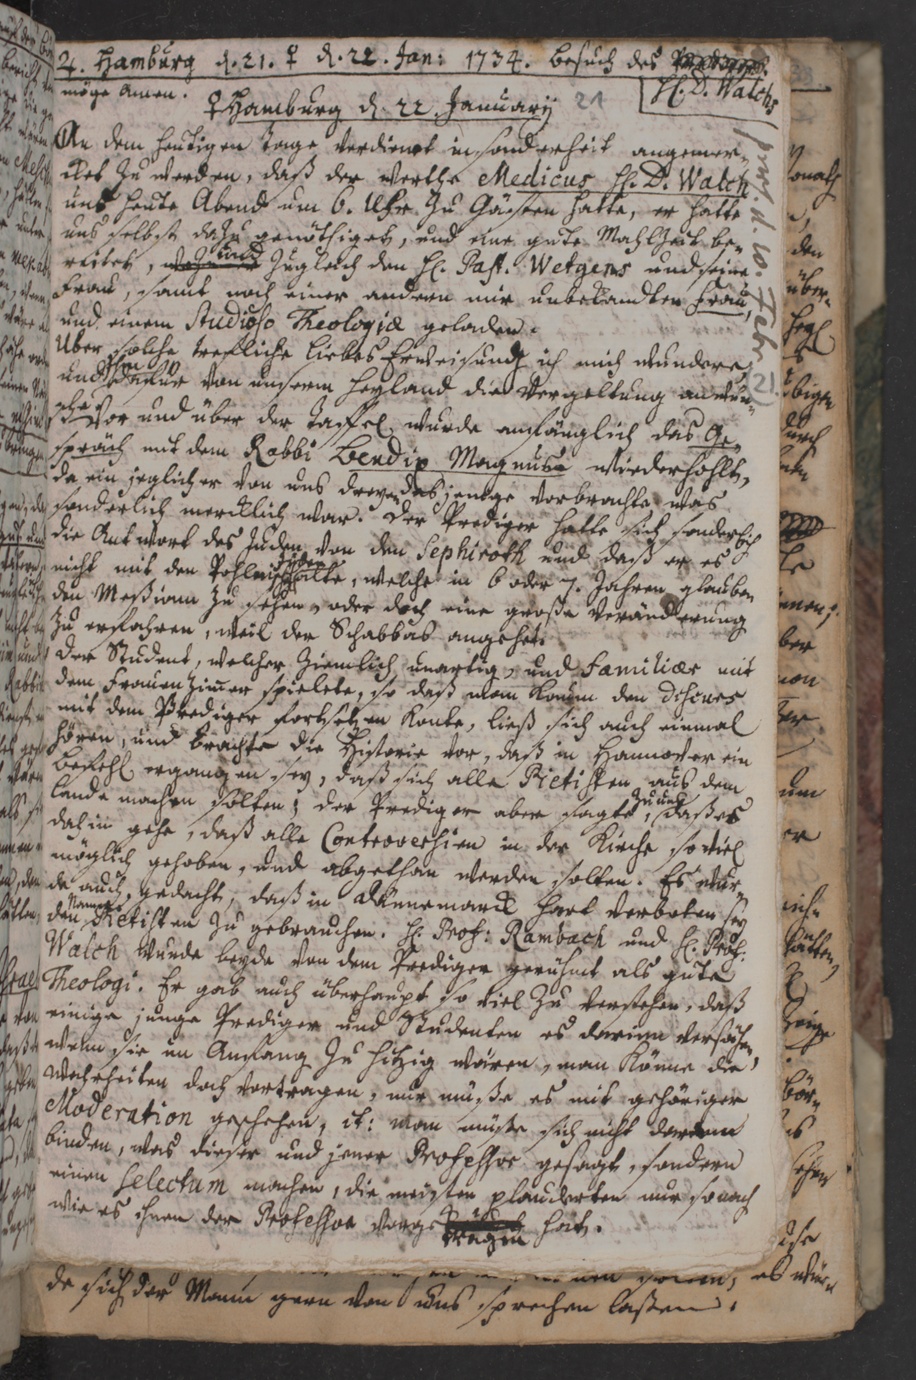 ♃. Hamburg d. 21. ♀ d. 22. Jan: 1734. Besuch des
H. D. Walchs
möge Amen.
♀ Hamburg d. 22 Januarij 21
An dem heutigen Tage verdienet insonderheit angemer-
cket zu werden, daß der werthe Medicus H. D. Walch
uns heute Abend um 6. Uhr zu Gästen hatte, er hatte
uns selbst dazu genöthiget, und eine gute Mahlzeit be-
reitet, und zugleich den H. Past. Wetgens und seine
Frau, samt noch einer andren mir unbekandten Frau,
und einem Studioso Theologiæ geladen.
Über solche trefliche Liebes Erweisung ich mich wundere,
und Ihm dafür von unserm Heyland die Vergeltung anwün-
sche. Vor und über der Taffel wurde anfänglich das Ge-
spräch mit dem Rabbi Bendix Magnus wiederhohlt,
da ein jeglicher von uns dreyen dasjenige vorbrachte, was
sonderlich mercklich war. Der Prediger hatte sich sonderlich
die Antwort des Juden von den Sephiroth und daß er es
nicht mit den Pohlnischen halte, welche in 6 oder 7. Jahren glauben
den Meßiam zu sehen, oder doch eine große Veränderung
zu erfahren, weil der Schabbas angehet.
Der Student, welcher ziemlich unartig, und familiær mit
dem Frauenzimmer spielete, so daß man kaum den discurs
mit dem Prediger fortsetzen konte, ließ sich auch einmal
hören, und brachte die Historie vor, daß in Hannover ein
Befehl ergangen sey, daß sich alle Pietisten aus dem
Lande machen solten; der Prediger aber sagte, daß es
dahin gehe, daß alle Controversien in der Kirche so viel
möglich gehoben, und abgethan werden solten. Es wur-
de auch gedacht, daß in Dännemarck hart verboten sey
den Namen Pietisten zu gebrauchen. H. Prof: Rambach und H. Prof.
Walch wurde beyde von dem Prediger gerühmt als gute
Theologi. Er gab auch überhaupt so viel zu verstehen, daß
einige junge Prediger und Studenten es darinn versähen,
wenn sie im Anfang zu hitzig wären, man könne die
Wahrheiten doch vortragen, nur müße es mit gehöriger
Moderation geschehen, it: man müße sich nicht daran
binden, was dieser und jener Professor gesagt, sondern
einen selectum machen, die meisten plauderten nur so nach
wie es ihnen der Professor vorgetragen hat.
de sich der Mann gern von uns sprechen laßen.